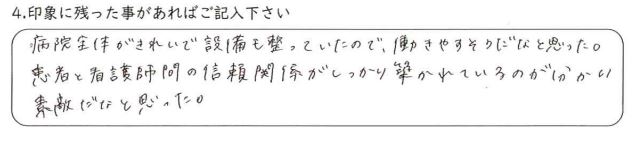 4.印象に残った事があればご記入下さい
病院全体がきれいで設備も整っていたので、働きやすそうだなと思った。
患者と看護師間の信頼関係がしっかり築かれているのが分かり
素敵だなと思った。